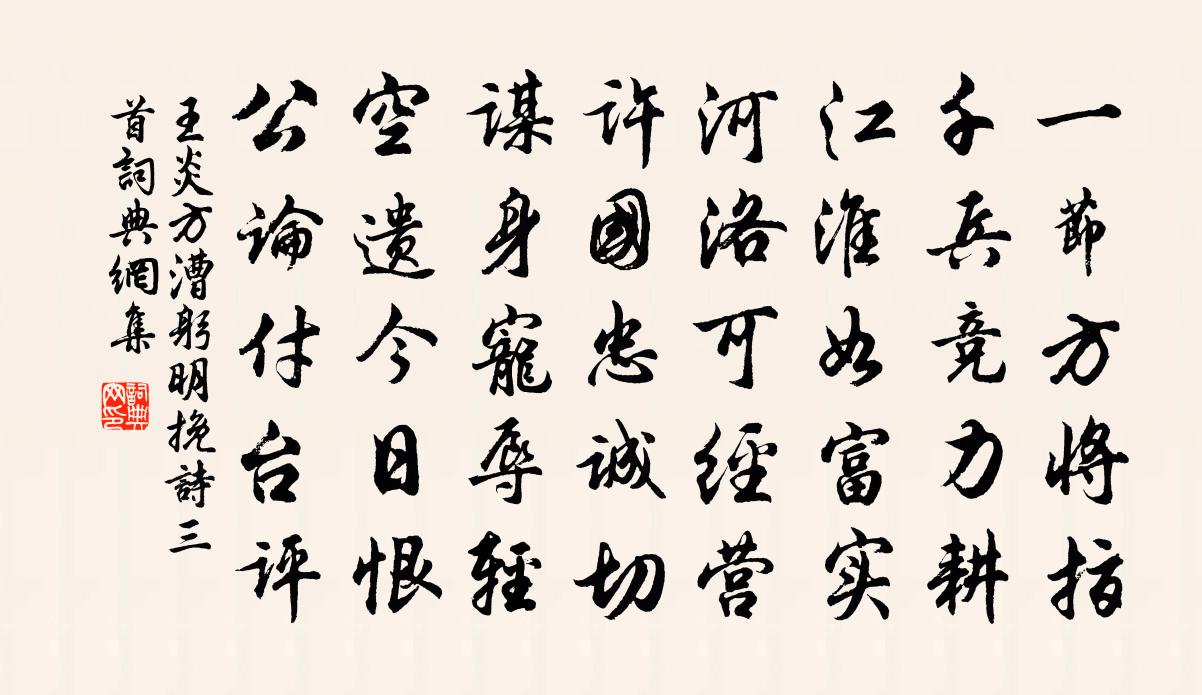 一節方将指
千兵竞力耕
江淮如富实
河洛可經营
許國忠诚切
謀身寵辱輕
空遗今日恨
公論付台评
王炎方漕躬明挽詩三
首詞典網集
詞典
网印